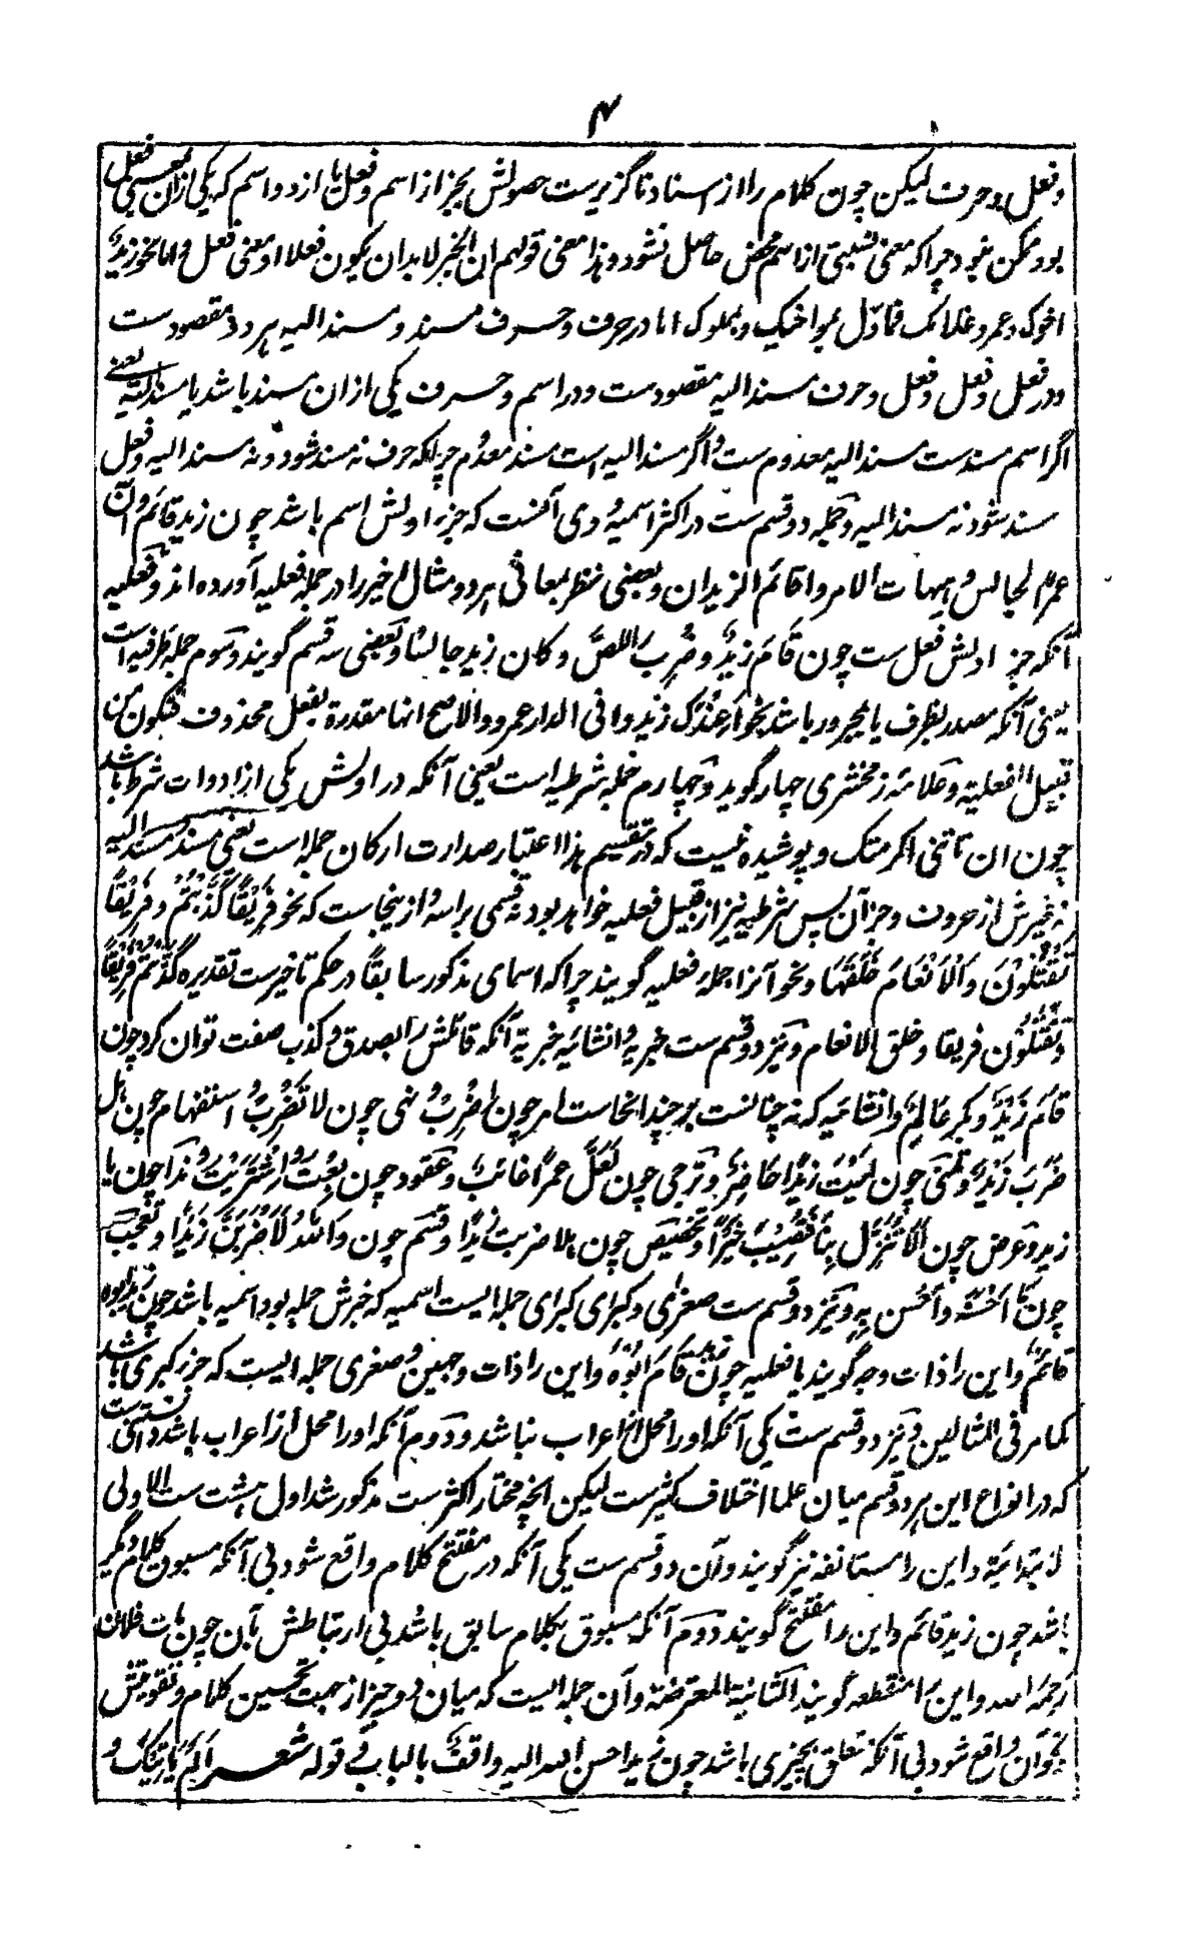 ۴
وفعل و حرف لیکن چون کلام را از اسناد ناگزیرست حصولش بجز از اسم و فعل یا از دو اسم که یکی ازان بمعنی فعل
بود ممکن نبود چراکه معنی نسبتی از اسم محض حاصل نشود و هذا معنی قولهم ان الخبر لابد ان یکون فعلا او معنی فعل و اما نحو زیدٌ
اخوک و عمرو غلامک فمأوّل بمواخیک و مملوک اما در حرف و حرف مسند و مسند الیه هر دو مفقودست
و در فعل و فعل و فعل و حرف مسند الیه مفقودست و در اسم و حرف یکی ازان مسند باشد یا مسند الیه یعنی
اگر اسم مسندست مسند الیه معدوم ست و اگر مسند الیه است مسند معدوم چراکه حرف نه مسند شود و نه مسند الیه و فعل
مسند شود نه مسند الیه و جمله دو قسم ست در اکثر اسمیه و وی آنست که جزء اولش اسم باشد چون زید قائم و ان
عمرًا لجالس و هیهات الامر و اقائم الزیدان و بعضی نظر بمعانی هر دو مثال اخیر را در جمله فعلیه آورده اند و فعلیه
آنکه جزء اولش فعل ست چون قَامَ زیدٌ و ضُرِبَ اللصُّ و کان زید جالسًا و بعضی سه قسم گویند و سوم جمله ظرفیه است
یعنی آنکه مصدر بظرف یا مجرور باشد نحو أعندک زید و افی الدار عمرو و الاصح انها مقدرة بفعل محذوف فتکون من
قبیل الفعلیة و علامه زمخشری چهار گوید و چهارم جمله شرطیه است یعنی آنکه در اولش یکی از ادوات شرط باشد
چون ان تاتنی اکرمتک و پوشیده نیست که در تقسیم هذا اعتبار صدارت ارکان جمله است یعنی مسند و مسند الیه
نه غیرش از حروف و جزآن پس شرطیه نیز از قبیل فعلیه خواهد بود نه قسمی براسه و از ینجاست که نحو فَرِیقًا کَذَّبْتُمْ وَ فَرِیقًا
تَقْتُلُونَ وَ الْاَنْعَامَ خَلَقَهَا و نحو آنرا جمله فعلیه گویند چراکه اسمای مذکور سابقًا در حکم تاخیرست تقدیره کذّبتم فریقًا
و تَقْتُلُونَ فریقا و خلق الانعام و نیز دو قسم ست خبریه و انشائیه خبریة آنکه قائلش را بصدق و کذب صفت توان کرد چون
قَامَ زَیْدٌ و بکر عَالِمٌ و انشائیه که نه چنانست بر چند انحاست امر چون اِضْرِبْ و نهی چون لا تَضْرِبْ و استفهام چون هل
ضَرَبَ زَیْدٌ و تمنی چون لَیْتَ زیدًا حَاضِرٌ و ترجی چون لَعَلَّ عمرًا غائبٌ و عقود چون بِعْتُ و اشْتَرَیْتُ و ندا چون یا
زید و عرض چون اَلَا تَنْزِلُ بِنَا فَتُصِیْبَ خَیْرًا و تحضیض چون هلا ضربت زیدًا و قسم چون وَاللهِ لَاَضْرِبَنَّ زَیْدًا و تعجب
چون مَا اَحْسَنَهُ و اَحْسِن بِهِ و نیز دو قسم ست صغرٰی و کبرای کبرای جمله ایست اسمیه که خبرش جمله بود اسمیه باشد چون زید ابوه
قائمٌ و این را ذات وجه گویند یا فعلیه چون زیدٌ قَامَ اَبُوْهُ و این را ذات وجهین و صغری جمله ایست که جزء کبری باشد
کما مر فی المثالین و نیز دو قسم ست یکی آنکه او را محل از اعراب نباشد و دوم آنکه او را محل از اعراب باشد دانستنی ست
که در انواع این هر دو قسم میان علما اختلاف کثیرست لیکن انچه مختار اکثرست مذکور شد اول هشت ست الاولی
لابتدائیة و این را مستانفه نیز گویند و آن دو قسم ست یکی آنکه در مفتتح کلام واقع شود بی آنکه مسبوق بکلام دیگر
باشد چون زید قائم و این را مفتتح گویند دوم آنکه مسبوق بکلام سابق باشد بی ارتباطش بآن چون مات فلان
رحمه الله و این را منقطعه گویند الثانیة المعترضة و آن جمله ایست که میان دو چیز از جهت تحسین کلام و تقویتش
نحو آن واقع شود بی آنکه تعلق بچیزی باشد چون زید احسن الله الیه واقفٌ بالباب و قوله شعر اَلَمْ یَاْتِیْکَ وَ